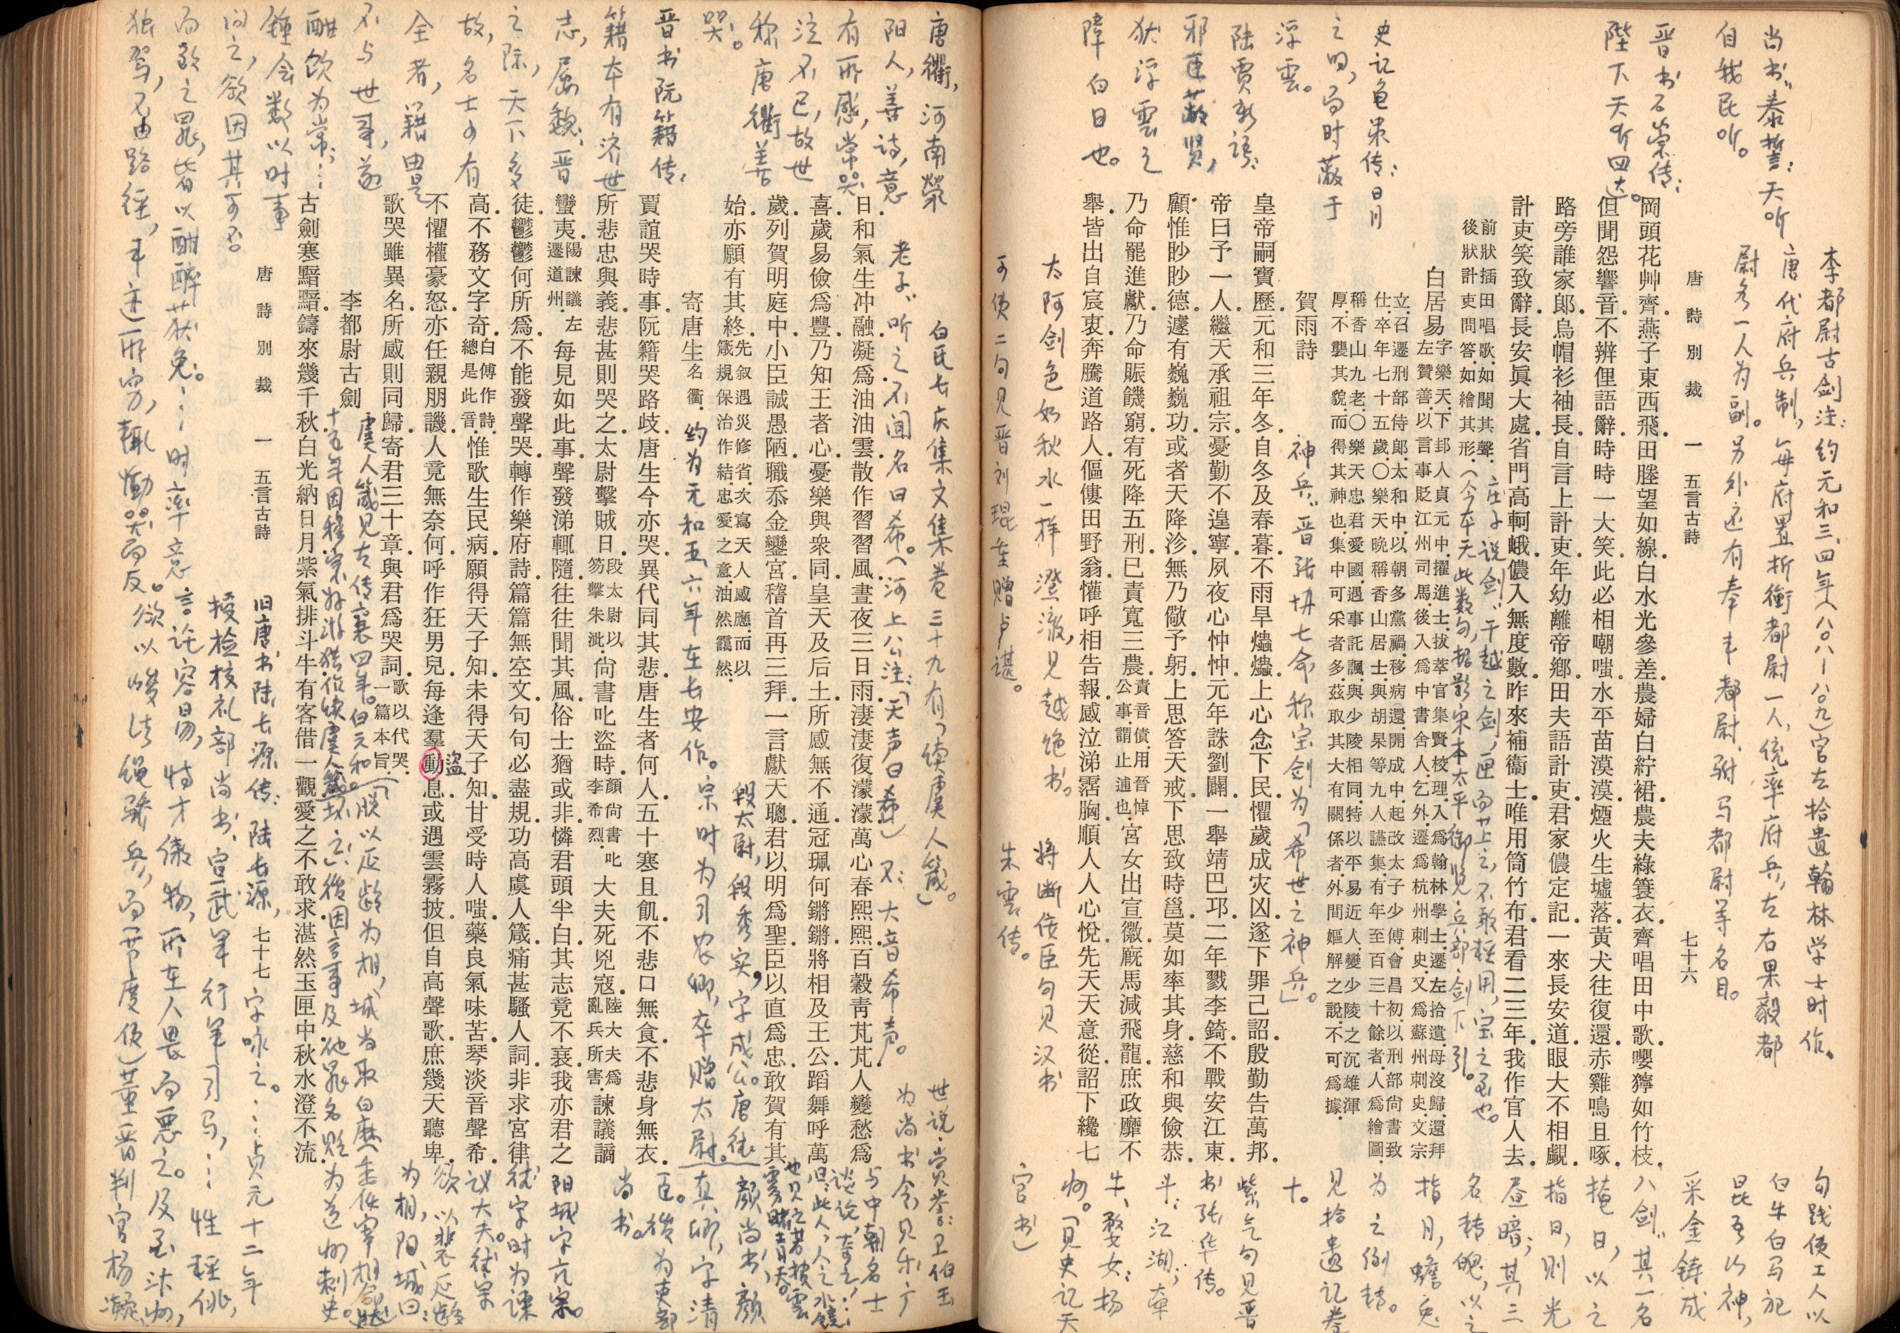 唐詩別裁 一 五言古詩 七十六
岡頭花艸齊燕子東西飛田塍望如線白水光參差農婦白紵裙農夫綠簑衣齊唱田中歌嚶獰如竹枝
但聞怨響音不辨俚語辭時時一大笑此必相嘲嗤水平苗漠漠煙火生墟落黃犬往復還赤雞鳴且啄
路旁誰家郎烏帽衫袖長自言上計吏年幼離帝鄉田夫語計吏君家儂定記一來長安道眼大不相覷
計吏笑致辭長安眞大處省門高軻峨儂入無度數昨來補衞士唯用筒竹布君看二三年我作官人去
前狀插田唱歌如聞其聲
後狀計吏問答如繪其形
白居易 字樂天下邽人貞元中擢進士拔萃官集賢校理入爲翰林學士遷左拾遺母沒歸還拜
左贊善以言事貶江州司馬後入爲中書舍人乞外遷爲杭州刺史又爲蘇州刺史文宗
立召遷刑部侍郎太和中以朝多黨禍移病還開成中起改太子少傅會昌初以刑部尙書致
仕卒年七十五歲〇樂天晩稱香山居士與胡杲等九人讌集有年至百三十餘者人爲繪圖
稱香山九老〇樂天忠君愛國遇事託諷與少陵相同特以平易近人變少陵之沉雄渾
厚不襲其貌而得其神也集中可采者多茲取其大有關係者外間嫗解之說不可爲據
賀雨詩
皇帝嗣寶歷元和三年冬自冬及春暮不雨旱爞爞上心念下民懼歲成灾凶遂下罪己詔殷勤告萬邦
帝曰予一人繼天承祖宗憂勤不遑寧夙夜心忡忡元年誅劉闢一舉靖巴邛二年戮李錡不戰安江東
顧惟眇眇德遽有巍巍功或者天降沴無乃儆予躬上思答天戒下思致時邕莫如率其身慈和與儉恭
乃命罷進獻乃命賑饑窮宥死降五刑已責寬三農責音債用晉悼公事謂止逋也宮女出宣徽廐馬減飛龍庶政靡不
舉皆出自宸衷奔騰道路人傴僂田野翁懽呼相告報感泣涕霑胸順人人心悅先天天意從詔下纔七
日和氣生沖融凝爲油油雲散作習習風晝夜三日雨淒淒復濛濛萬心春熙熙百穀青芃芃人變愁爲
喜歲易儉爲豐乃知王者心憂樂與衆同皇天及后土所感無不通冠珮何鏘鏘將相及王公蹈舞呼萬
歲列賀明庭中小臣誠愚陋職忝金鑾宮稽首再三拜一言獻天聰君以明爲聖臣以直爲忠敢賀有其
始亦願有其終先叙遇災修省次寫天人感應而以箴規保治作結忠愛之意油然靄然
寄唐生名衢
賈誼哭時事阮籍哭路歧唐生今亦哭異代同其悲唐生者何人五十寒且飢不悲口無食不悲身無衣
所悲忠與義悲甚則哭之太尉擊賊日段太尉以笏擊朱泚尙書叱盜時顏尙書叱李希烈大夫死兇寇陸大夫爲亂兵所害諫議謫
蠻夷陽諫議左遷道州每見如此事聲發涕輒隨往往聞其風俗士猶或非憐君頭半白其志竟不衰我亦君之
徒鬱鬱何所爲不能發聲哭轉作樂府詩篇篇無空文句句必盡規功高虞人箴痛甚騷人詞非求宮律
高不務文字奇白傅作詩總是此音惟歌生民病願得天子知未得天子知甘受時人嗤藥良氣味苦琴淡音聲希
不懼權豪怒亦任親朋譏人竟無奈何呼作狂男兒每逢羣動息或遇雲霧披但自高聲歌庶幾天聽卑
盜
歌哭雖異名所感則同歸寄君三十章與君爲哭詞歌以代哭一篇本旨
李都尉古劍
古劍寒黯黯鑄來幾千秋白光納日月紫氣排斗牛有客借一觀愛之不敢求湛然玉匣中秋水澄不流
唐詩別裁 一 五言古詩 七十七
李都尉古剑注：约元和三、四年（八〇八—八〇九）官左拾遗翰林学士时作。
唐代府兵制，每府置折衝都尉一人，统率府兵，左右果毅都
尉各一人为副。另外还有奉车都尉、驸马都尉等名目。
尚书“泰誓：天听
自我民听。
晋书石崇传：
陛下天听四达。
史记龟策传：日月
之明，而时蔽于
浮雲。
陆贾新语：
邪臣蔽贤，
犹浮雲之
障白日也。
神兵：晋张协七命称宝剑为「希世之神兵」。
太阿剑色如秋水一样澄澈，见越绝书。
将断佞臣句见汉书
朱雲传。
可使二句见晋刘琨重赠卢谌。
句践使工人以
白牛白马祀
昆吾山神，
采金铸成
八剑“其一名
掩日，以之
指日，则光
昼暗；其三
名转魄，以之
指月，蟾兔
为之倒转。
见拾遗记卷
十。
紫气句见晋
书张华传。
唐衢，河南榮
阳人，善诗，意
有所感，常哭
泣不已，故世
称唐衢善
哭。
晋书阮籍传：
籍本有济世
志，属魏、晋
之际，天下多
故，名士少有
全者，籍由是
不与世事，遂
酣饮为常…
鍾会数以时事
问之，欲因其可否
而致之罪，皆以酣醉获免。…时率意
独驾，不由路径，车迹所穷，輒慟哭而反。
老子：听之不闻名曰希。（河上公注：「天声曰希」）又：大音希声。
白氏长庆集文集卷三十九有「续虞人箴」。
约为元和五、六年在长安作。
段太尉，段秀实，字成公。唐德
宗时为司农卿，卒赠太尉。
颜尚书，颜
真卿，字清
臣。後为吏部
尚书。
阳城字亢宗。
德宗时为谏
议大夫。德宗
欲以裴延龄
为相，阳城曰
旧唐书陆长源传：陆长源，字泳之。…贞元十二年
授检校礼部尚书、宣武军行军司马，…性轻佻，
言论容易，恃才傲物，所在人畏而恶之。及至汴州，
欲以峻法绳骄兵，而节度使）董晋判官杨凝